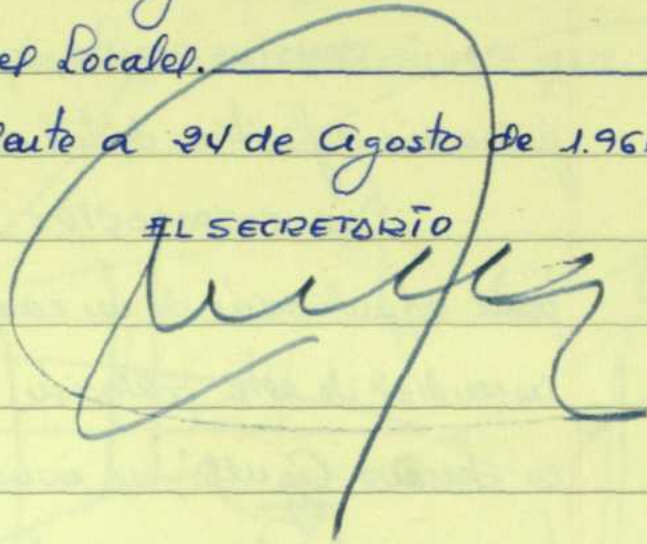 Locales.
a 24 de Agosto de 1.96
EL SECRETARIO